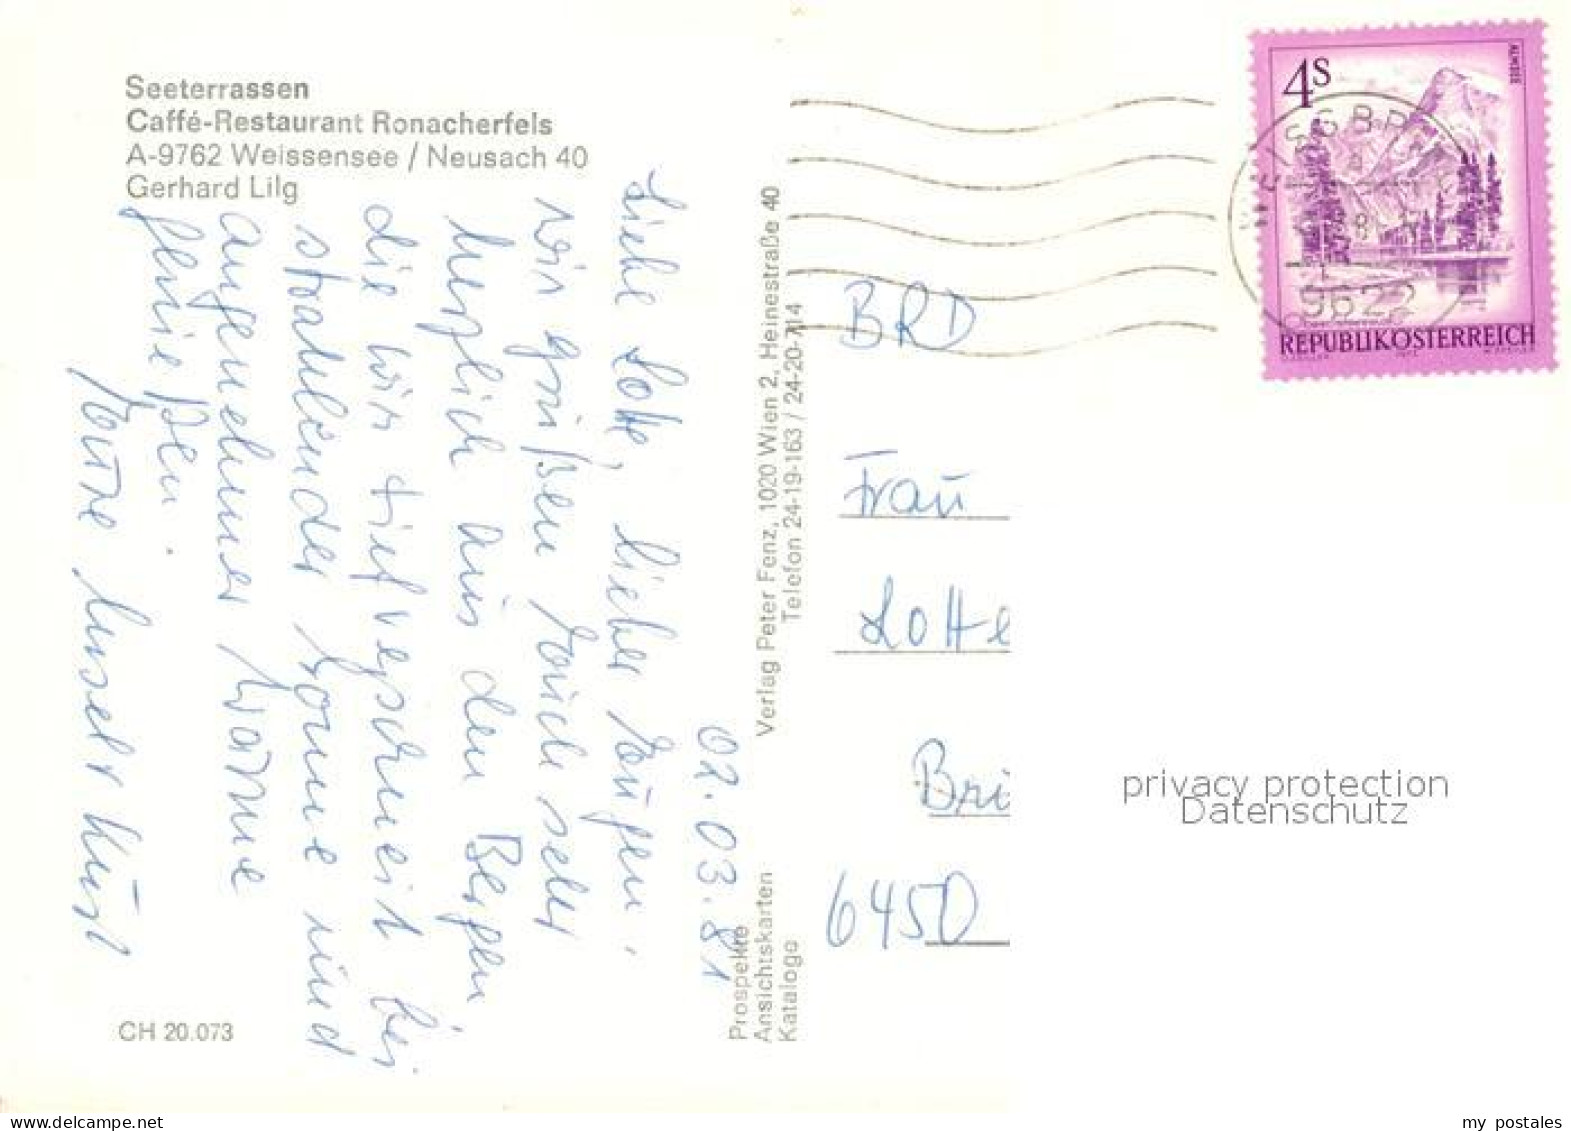 Seeterrassen
Caffé-Restaurant Ronacherfels
A-9762 Weissensee / Neusach 40
Gerhard Lilg
02.03.81
Liebe Lotte, lieber Eugen.
wir grüßen Euch sehr
herzlich aus den Bergen,
die wir tief verschneit bei
strahlender Sonne und
angenehmer Wärme
genießen.
Eure
CH 20.073
Verlag Peter Fenz, 1020 Wien 2, Heinestraße 40
Telefon 24-19-163 / 24-20-714
Prospekte
Ansichtskarten
Kataloge
4S
ALMSEE
REPUBLIK ÖSTERREICH
9622
BRD
Frau
Lotte
Bri
6450
privacy protection
Datenschutz
my postales